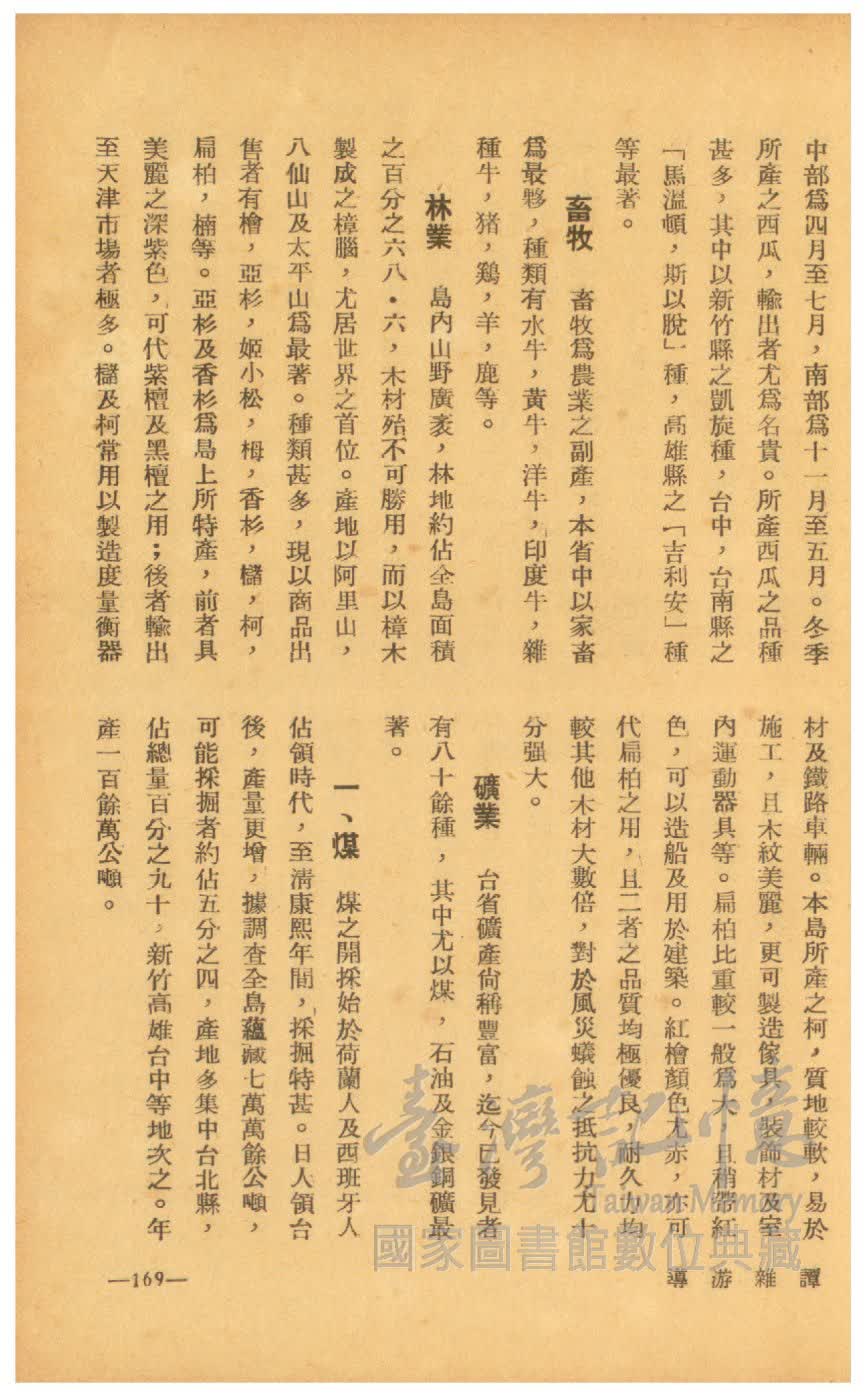 中部爲四月至七月，南部爲十一月至五月。冬季
所產之西瓜，輸出者尤爲名貴。所產西瓜之品種
甚多，其中以新竹縣之凱旋種，台中，台南縣之
「馬溫頓，斯以脫」種，高雄縣之「吉利安」種
等最著。
畜牧　畜牧爲農業之副產，本省中以家畜
爲最夥，種類有水牛，黃牛，洋牛，印度牛，雜
種牛，猪，鷄，羊，鹿等。
林業　島內山野廣袤，林地約佔全島面積
之百分之六八·六，木材殆不可勝用，而以樟木
製成之樟腦，尤居世界之首位。產地以阿里山，
八仙山及太平山爲最著。種類甚多，現以商品出
售者有檜，亞杉，姬小松，栂，香杉，櫧，柯，
扁柏，楠等。亞杉及香杉爲島上所特產，前者具
美麗之深紫色，可代紫檀及黑檀之用；後者輸出
至天津市場者極多。櫧及柯常用以製造度量衡器
材及鐵路車輛。本島所產之柯，質地較軟，易於
施工，且木紋美麗，更可製造傢具，裝飾材及室
內運動器具等。扁柏比重較一般爲大，且稍帶紅
色，可以造船及用於建築。紅檜顏色尤赤，亦可
代扁柏之用，且二者之品質均極優良，耐久力均
較其他木材大數倍，對於風災蟻蝕之抵抗力尤十
分强大。
礦業　台省礦產尙稱豐富，迄今已發見者
有八十餘種，其中尤以煤，石油及金銀銅礦最
著。
一、煤　煤之開採始於荷蘭人及西班牙人
佔領時代，至淸康熙年間，採掘特甚。日人領台
後，產量更增，據調查全島蘊藏七萬萬餘公噸，
可能採掘者約佔五分之四，產地多集中台北縣，
佔總量百分之九十，新竹高雄台中等地次之。年
產一百餘萬公噸。
譚雜游導
—169—
臺灣記憶
Taiwan Memory
國家圖書館數位典藏